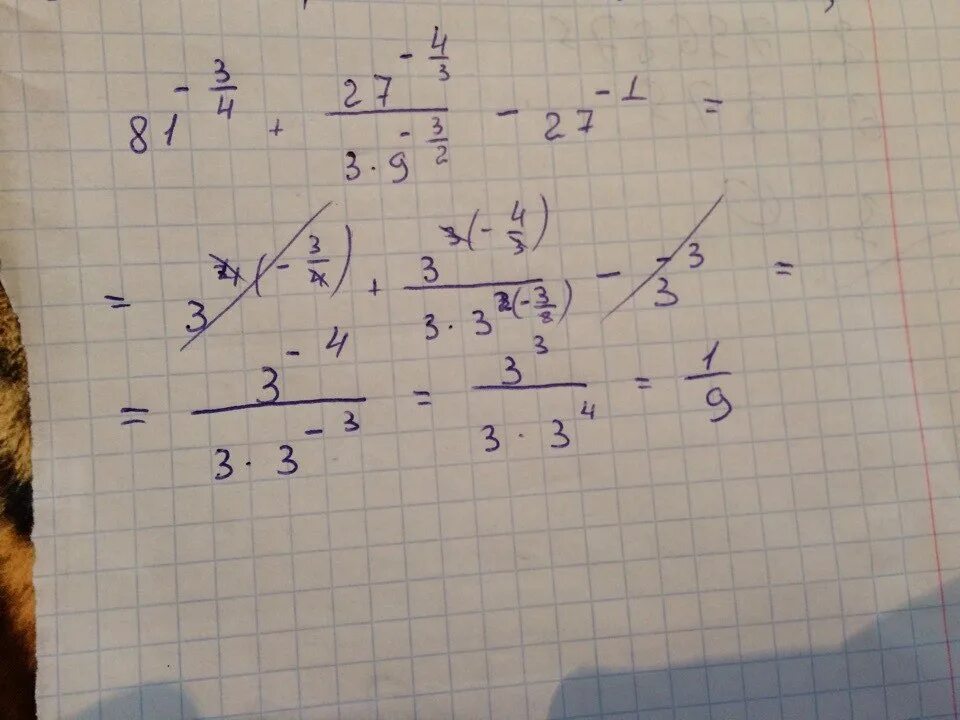 81^(-3/4) + 27^(-4/3) / (3 · 9^(-3/2)) - 27^(-1) =
= 3^(4(-3/4)) + 3^(3(-4/3)) / (3 · 3^(2(-3/2))) - 3^(-3) =
= 3^(-4) / (3 · 3^(-3)) = 3^3 / (3 · 3^4) = 1/9